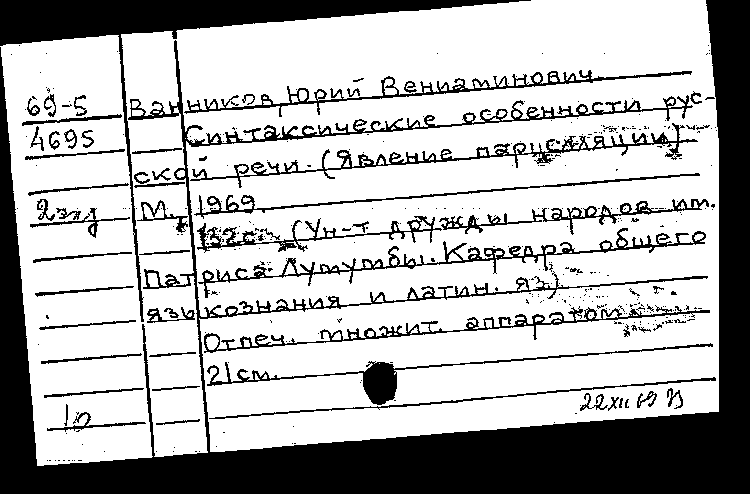 69-5 Ванников, Юрий Вениаминович
4695 Синтаксические особенности рус-
ской речи. (Явление парцелляции)
2 экз М., 1969.
132с. (Ун-т дружбы народов им.
Патриса Лумумбы. Кафедра общего
языкознания и латин. яз)
Отпеч. множит. аппаратом.
21см.
10
22 XII 69